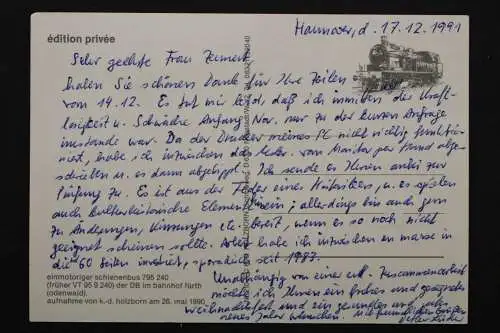 édition privée
Hannover, d. 17.12.1991
Sehr geehrte Frau
haben Sie schönen Dank für Ihre Zeilen
vom 14.12. Es tut mir leid, daß ich inmitten der Kraft-
losigkeit u. Schwäche Anfang Nov. nur zu der kurzen Anfrage
imstande war. Da der Drucker meines PC nicht richtig funktio-
niert, habe ich inzwischen das vom Monitor per Hand abge-
schrieben u. es dann abgetippt. Ich sende es Ihnen anbei zur
Prüfung zu. Es ist aus der Feder eines Historikers, u. es spielen
auch kulturhistorische Elemente hinein; allerdings bin auch gern
zu Änderungen, Kürzungen etc. bereit, wenn es so noch nicht
geeignet scheinen sollte. habe ich inzwischen en masse in
die 60 Seiten investiert, sporadisch seit 1987.
einmotoriger schienenbus 795 240
(früher VT 95 9 240) der DB im bahnhof fürth
(odenwald).
aufnahme von k.-d. holzborn am 26. mai 1990
Unabhängig von einer evtl. Zusammenarbeit
möchte ich Ihnen ein frohes und gesegnetes
Weihnachtsfest und ein gesundes u.
neues Jahr wünschen. Mit freundlichen Grüßen